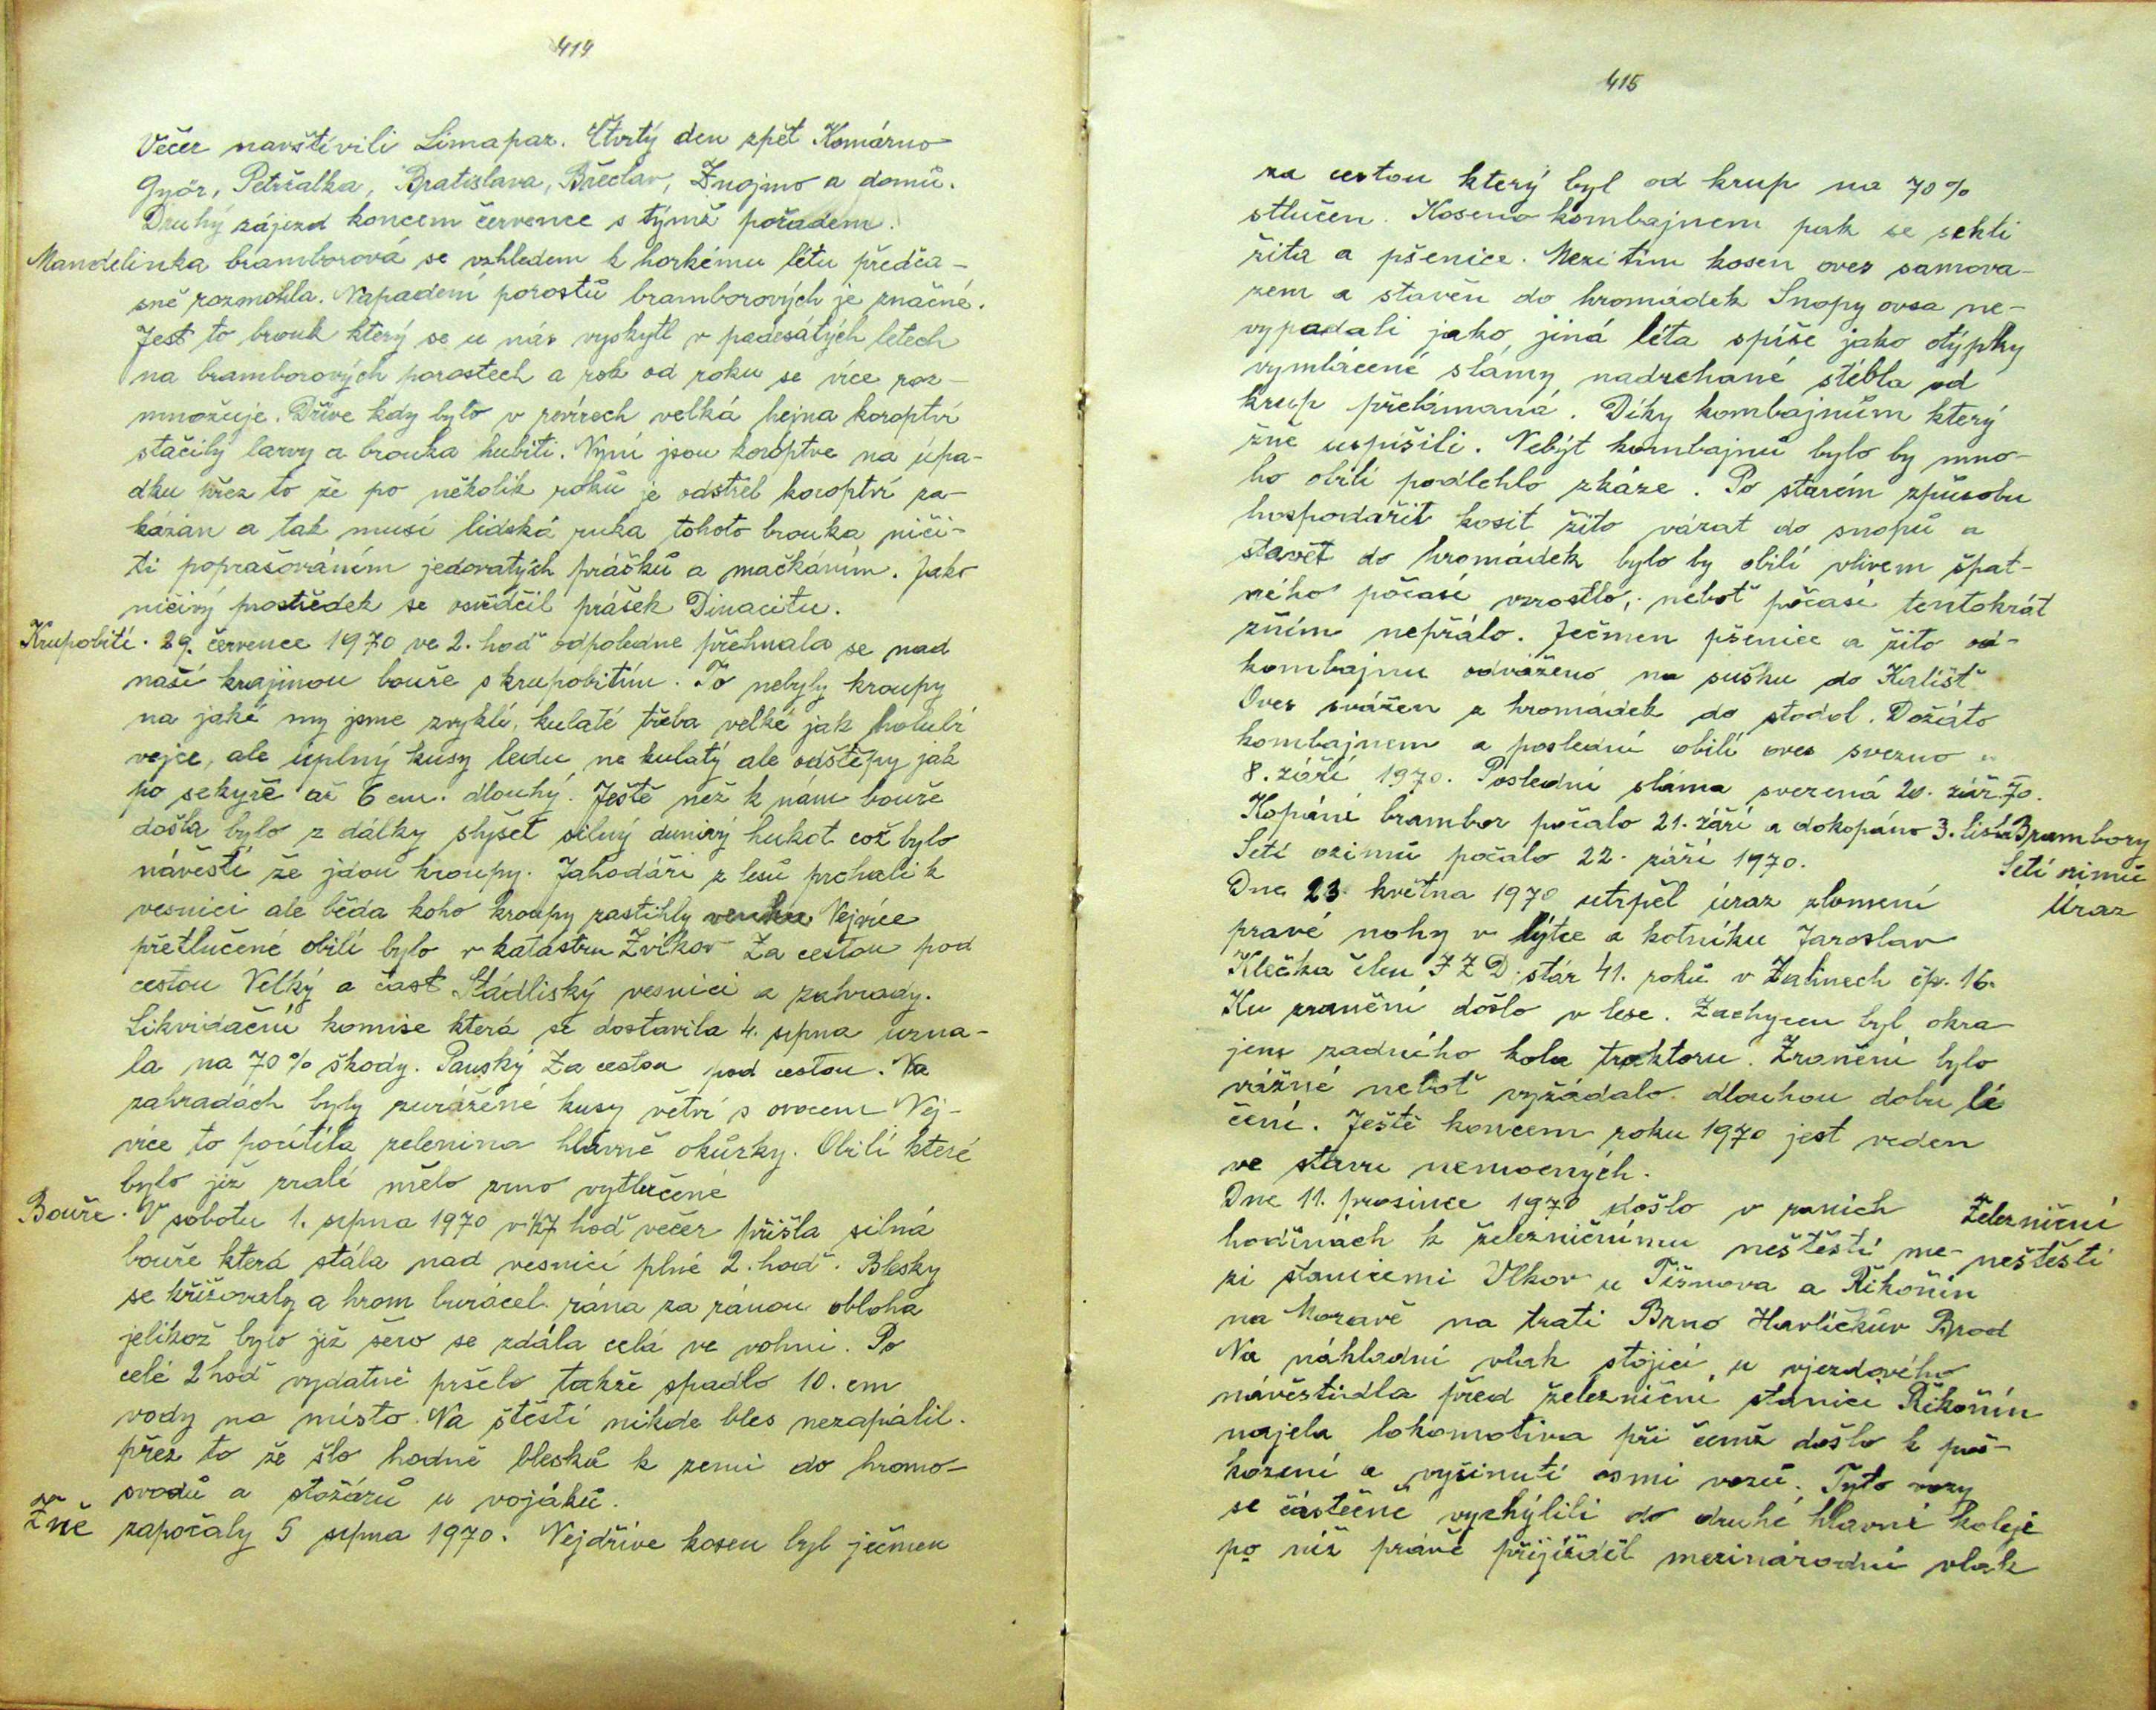 414
Večer navštívili Limapar. Čtvrtý den zpět Komárno
Győr, Petržalka, Bratislava, Břeclav, Znojmo a domů.
Druhý zájezd koncem července s týmž pořadem.
Mandelinka bramborová se vzhledem k horkému létu předča-
sně rozmohla. Napadení porostů bramborových je značné.
Jest to brouk který se u nás vyskytl v padesátých letech
na bramborových porostech a rok od roku se více roz-
množuje. Dříve kdy bylo v revírech velká hejna koroptví
stačily larvy a brouka hubiti. Nyní jsou koroptve na úpa-
dku křez to že po několik roků je odstřel koroptví za-
kázán a tak musí lidská ruka tohoto brouka niči-
ti poprašováním jedovatých prášků a mačkáním. Jako
ničivý prostředek se osvědčil prášek Dinacitu.
Krupobití. 29. července 1970 ve 2. hoď odpoledne přehnala se nad
naší krajinou bouře s krupobitím. To nebyly kroupy
na jaké my jsme zvyklí, kulaté třeba velké jak holubí
vejce, ale úplný kusy ledu ne kulatý ale odštěpy jak
po sekyře až 6 cm. dlouhý. Ještě než k nám bouře
došla bylo z dálky slyšet silný dunivý hukot což bylo
návěstí že jdou kroupy. Jahodáři z lesů prchali k
vesnici ale běda koho kroupy zastihly venku Nejvíce
přetlučené obilí bylo v katastru Zvíkov Za cestou pod
cestou Velký a část Stádliský vesnici a zahrady.
Likvidační komise která se dostavila 4. srpna uzna-
la na 70% škody. Panský Za cestou pod cestou. Na
zahradách byly zurážené kusy větví s ovocem Nej-
více to pocítila zelenina hlavně okůrky. Obilí které
bylo již zralé mělo zrno vytlučené
Bouře. V sobotu 1. srpna 1970 v ½7 hoď večer přišla silná
bouře která stála nad vesnicí plné 2. hoď. Blesky
se křižovaly a hrom burácel rána za ránou obloha
jelikož bylo již šero se zdála celá ve vohni. Po
celé 2 hoď vydatně pršelo takže spadlo 10. cm
vody na místo. Na štěstí nikde bles nezapálil.
přez to že šlo hodně blesků k zemi do hromo-
svodů a stožárů u vojáků.
Žně započaly 5 srpna 1970. Nejdříve kosen byl ječmen
415
za cestou který byl od krup na 70%
stlučen. Koseno kombajnem pak se sekli
žita a pšenice. Mezi tím kosen oves samova-
zem a stavěn do hromádek Snopy ovsa ne-
vypadali jako jiná léta spíše jako otýpky
vymlácené slámy nadrchané stébla od
krup přelámaná. Díky kombajnům který
žně uspíšili. Nebýt kombajnů bylo by mno-
ho obilí podlehlo zkáze. Po starém způsobu
hospodařit kosit žito vázat do snopů a
stavět do hromádek bylo by obilí vlivem špat-
ného počasí vzrostlo, neboť počasí tentokrát
žním nepřálo. Ječmen pšenice a žito od-
kombajnu odváženo na sušku do Kališť
Oves svážen z hromádek do stodol. Dožato
kombajnem a poslední obilí oves svezno
8. září 1970. Poslední sláma svezená 20. zář. 70.
Kopání brambor počalo 21. září a dokopáno 3. lista Brambory
Setí ozimů počalo 22. září 1970. Setí zimů
Dne 23 května 1970 utrpěl úraz zlomení Úraz
pravé nohy v lýtce a kotníku Jaroslav
Klečka člen JZD. stár 41. roků v Zalinech čp. 16.
Ku zranění došlo v lese. Zachycen byl okra-
jem zadního kola traktoru. Zranění bylo
vážné neboť vyžádalo dlouhou dobu lé
čení. Ještě koncem roku 1970 jest veden
ve stavu nemocných.
Dne 11. prosince 1970 došlo v raních Železniční
hodinách k železničnímu neštěstí me- neštěstí
zi stanicemi Vlkov u Tišnova a Řikonín
na Moravě na trati Brno Havlíčkův Brod
Na nákladní vlak stojící u vjezdového
návěstidla před železniční stanici Řikonín
najela lokomotiva při čemž došlo k poš-
kození a vyšinutí osmi vozů. Tyto vozy
se částečně vychýlili do druhé hlavní koleje
po níž právě přijížděl mezinárodní vlak